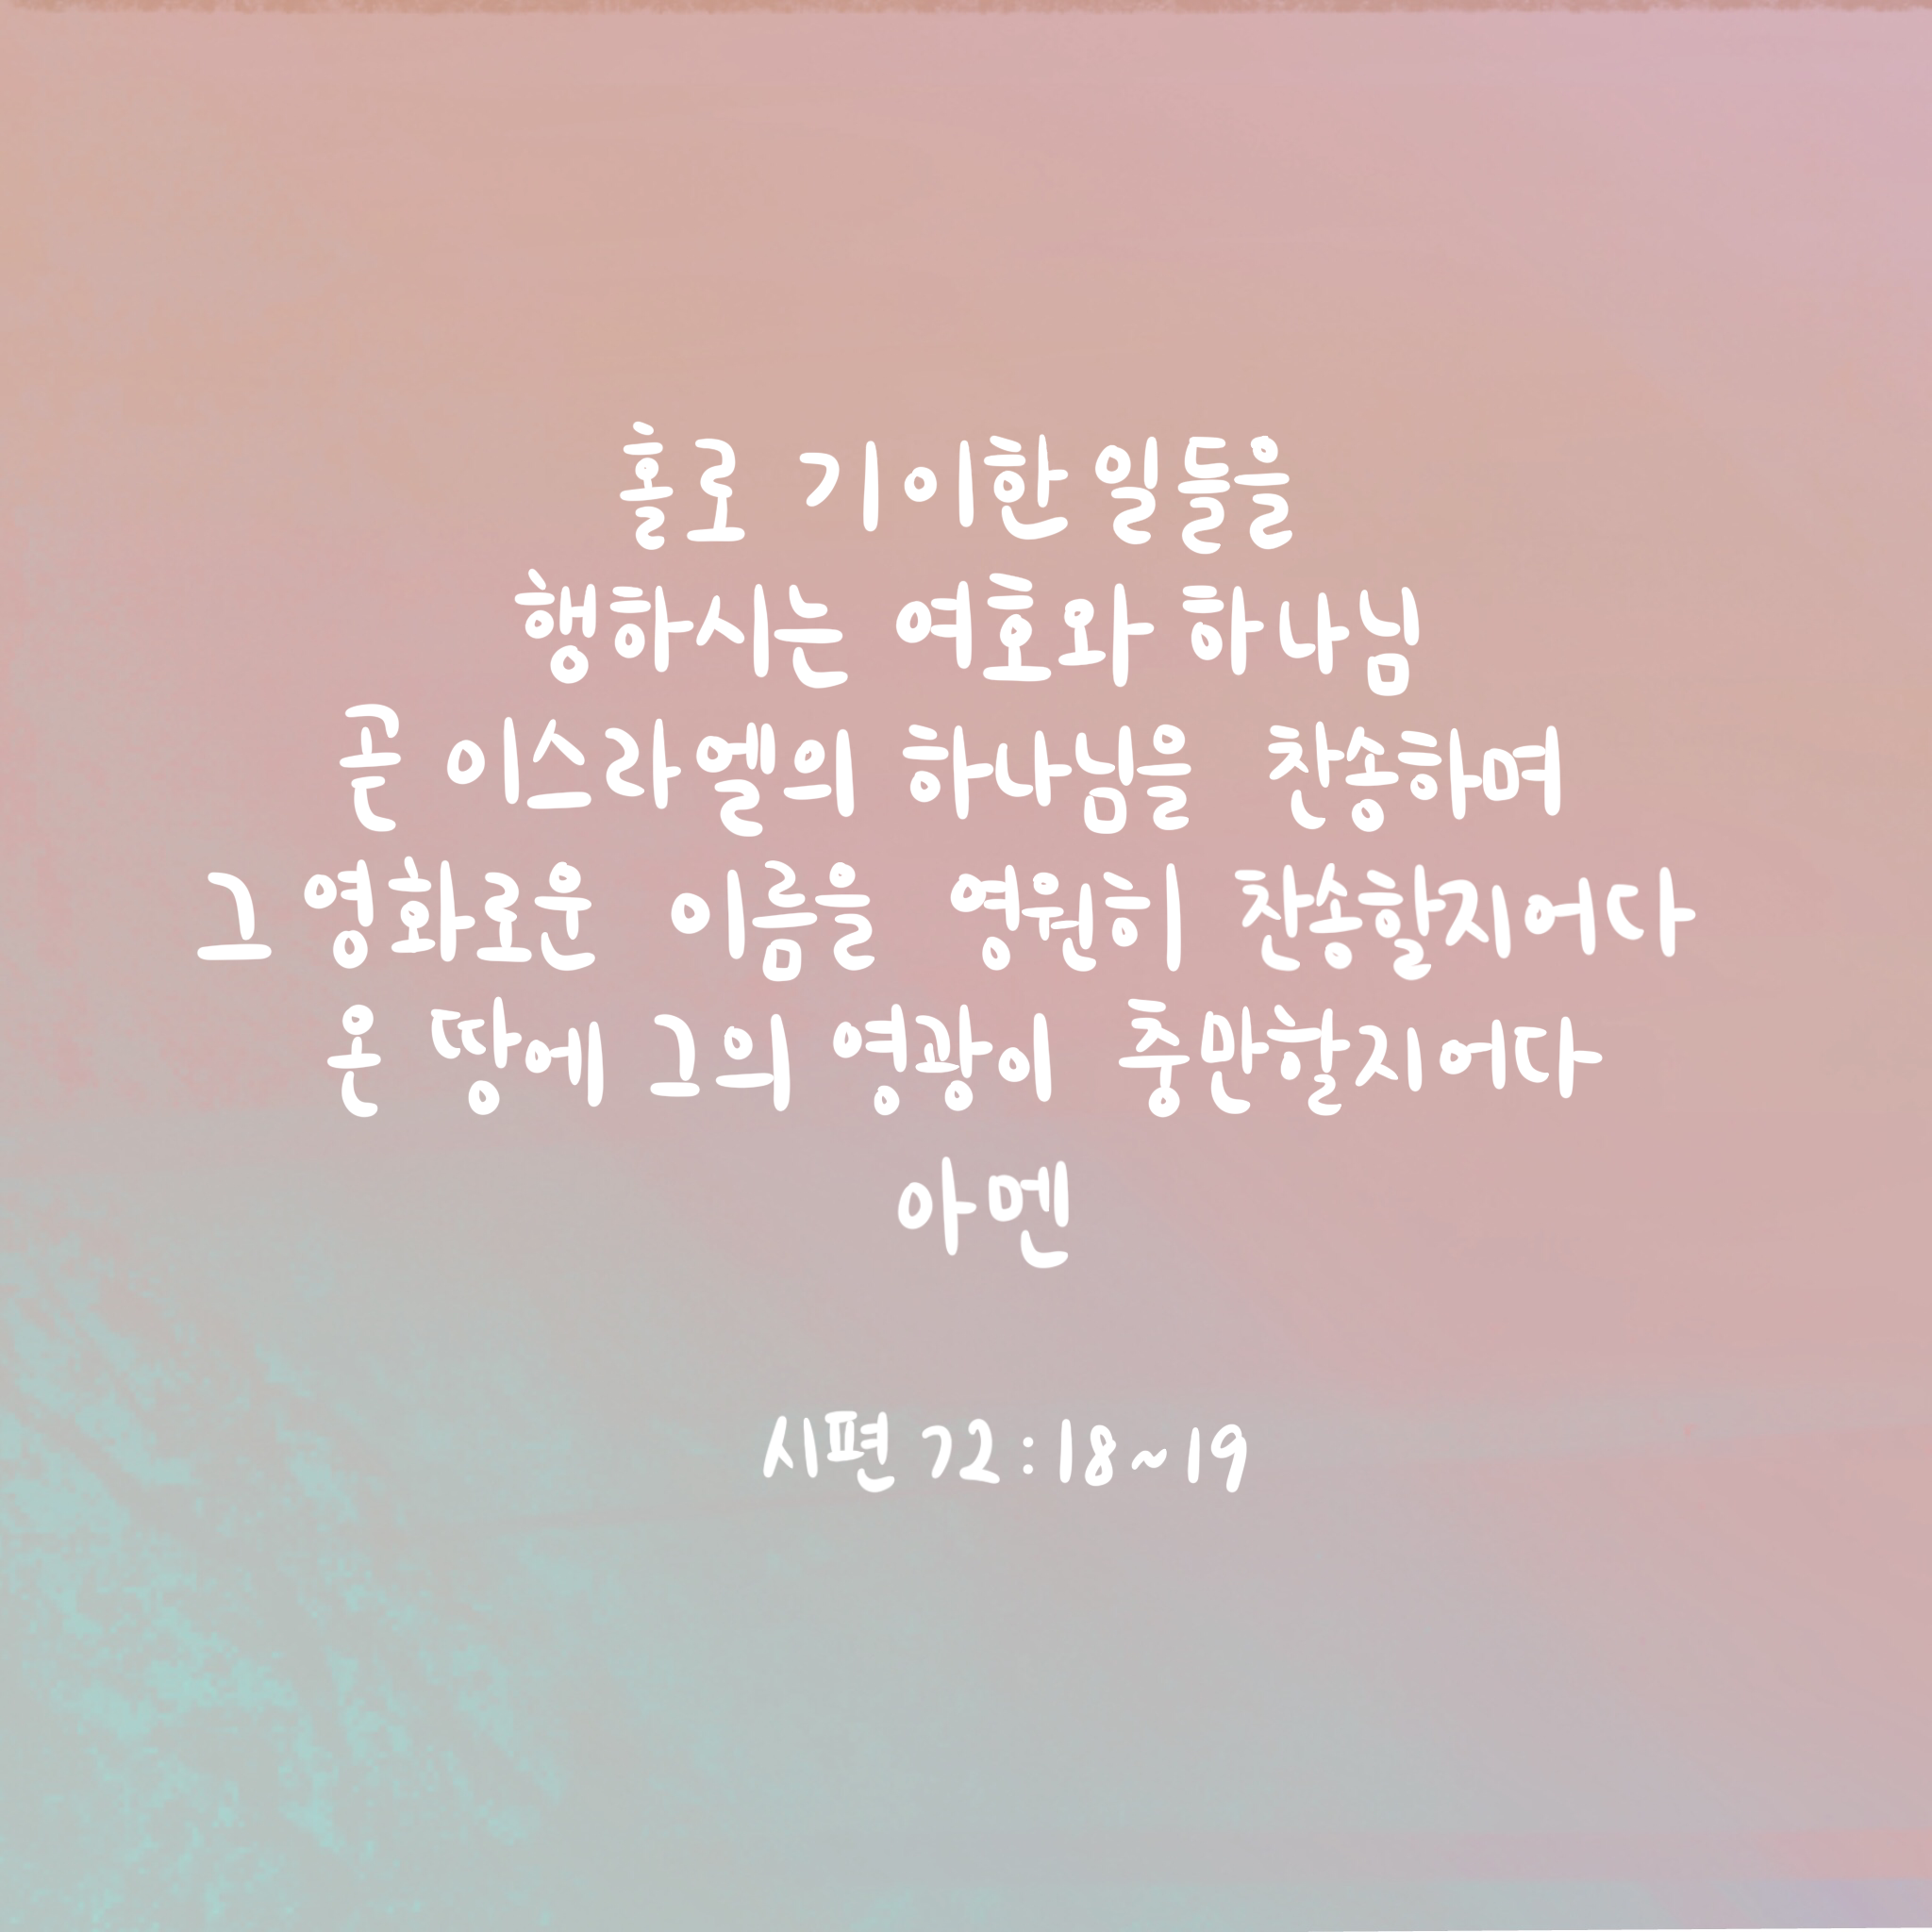 홀로 기이한 일들을
행하시는 여호와 하나님
곧 이스라엘의 하나님을 찬송하며
그 영화로운 이름을 영원히 찬송할지어다
온 땅에 그의 영광이 충만할지어다
아멘
시편 72:18~19